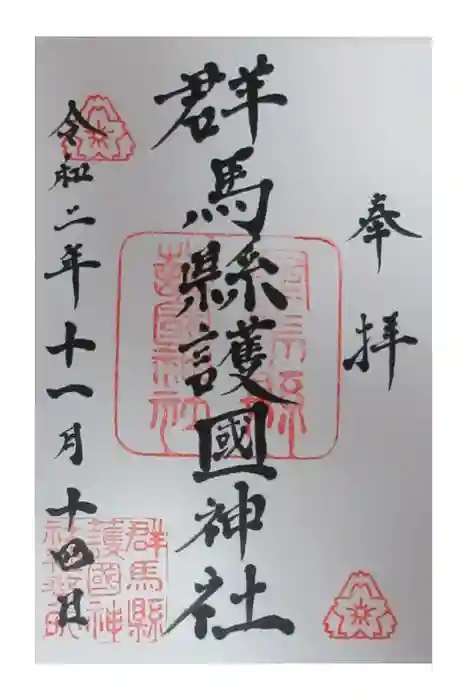 奉拝
群馬縣護國神社
令和二年十一月十四日
群馬縣
護國神社
群馬縣
護國神
社社務所